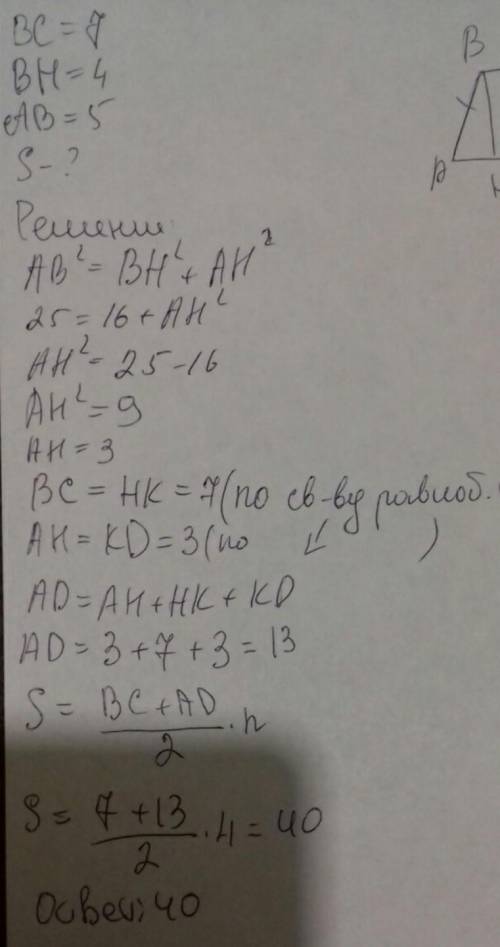 BC = 7
B
BH = 4
AB = 5
A
H
S - ?
Решении
AB² = BH² + AH²
25 = 16 + AH²
AH² = 25 - 16
AH² = 9
AH = 3
BC = HK = 7 (по св-ву равноб.
AH = KD = 3 (по ↙ )
AD = AH + HK + KD
AD = 3 + 7 + 3 = 13
S = (BC + AD)/2 · h
S = (7 + 13)/2 · 4 = 40
Ответ: 40